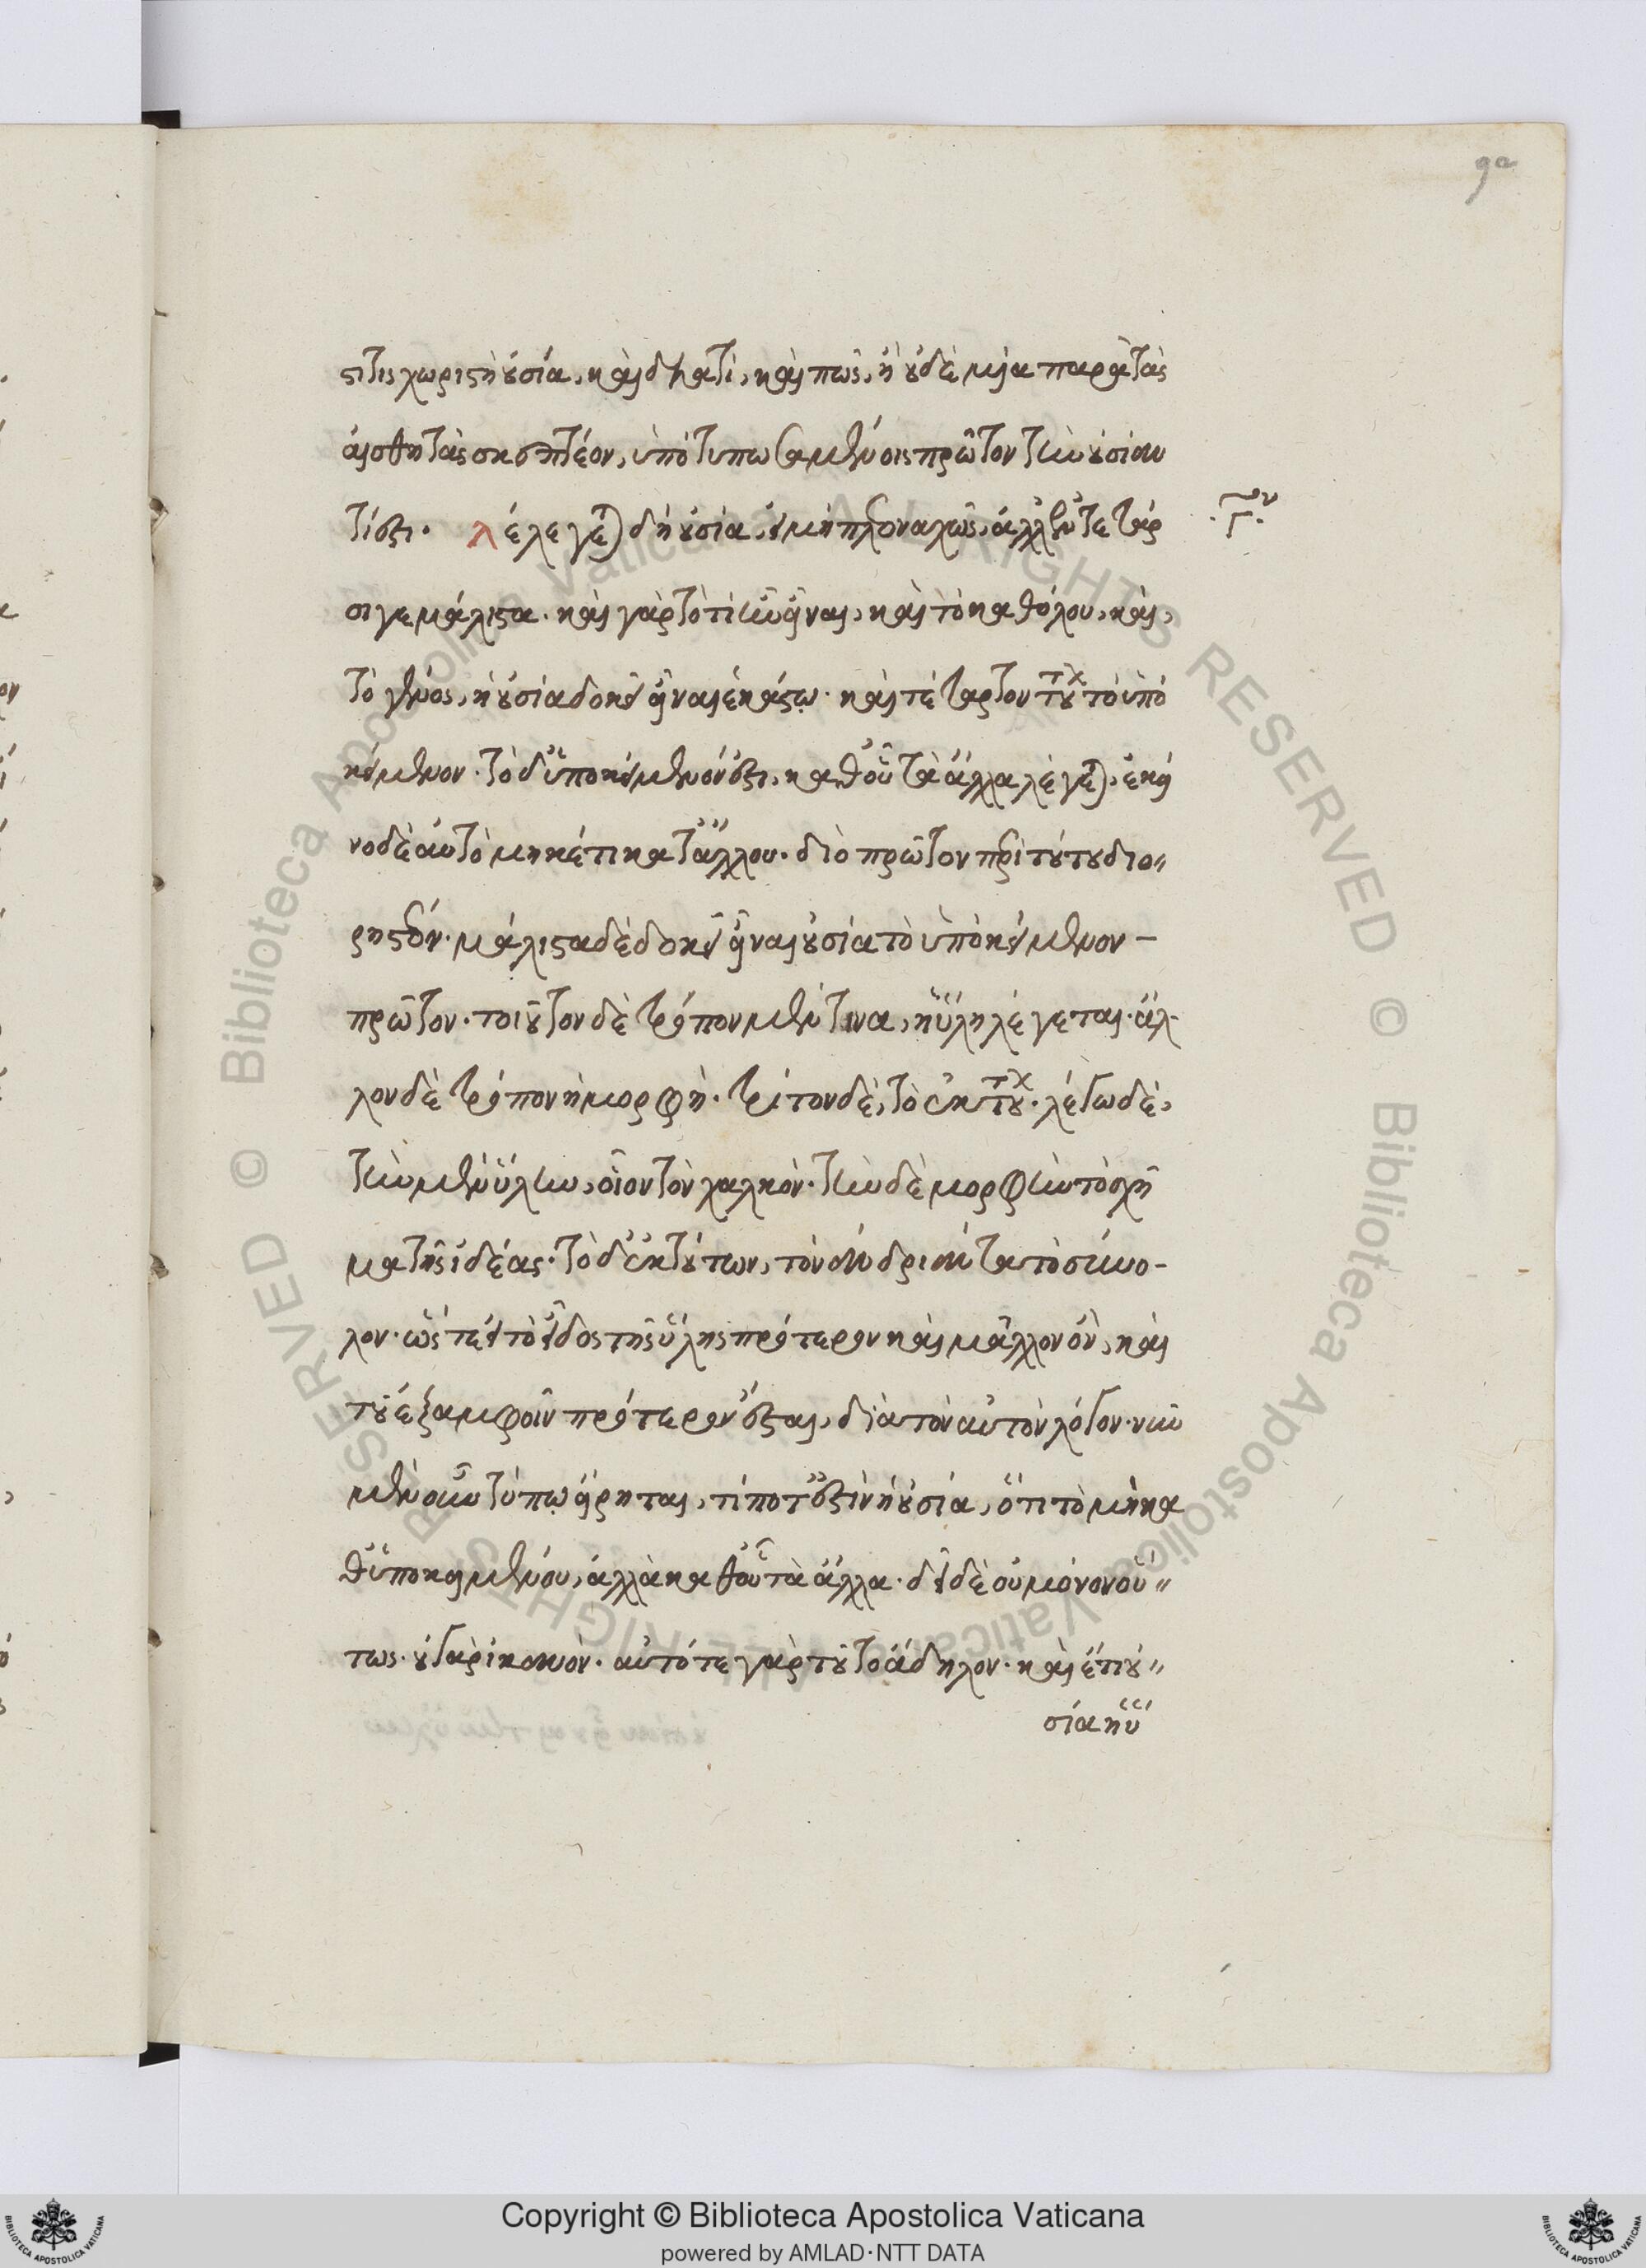 90
στί τις χωριστὴ οὐσία, καὶ διατί, καὶ πῶς, ἢ οὐδὲ μία παρὰ τὰς
αἰσθητὰς σκεπτέον, ὑποτυπωσαμένοις πρῶτον τὴν οὐσίαν
τί ἐστι. λέγεται δ' ἡ οὐσία, εἰ μὴ πλεοναχῶς, ἀλλ' ἐν τέταρ
.Γ.ον
σι γε μάλιστα. καὶ γὰρ τὸ τί ἦν εἶναι, καὶ τὸ καθόλου, καὶ,
τὸ γένος, ἡ οὐσία δοκεῖ εἶναι ἑκάστῳ. καὶ τέταρτον τούτων τὸ ὑπο
κείμενον. τὸ δ' ὑποκείμενόν ἐστι, καθ' οὗ τὰ ἄλλα λέγεται, ἐκεῖ
νο δὲ αὐτὸ μηκέτι κατ' ἄλλου. διὸ πρῶτον περὶ τούτου διο-
ριστέον. μάλιστα δὲ δοκεῖ εἶναι οὐσία τὸ ὑποκείμενον -
πρῶτον. τοιοῦτον δὲ τρόπον μέν τινα, ἡ ὕλη λέγεται. ἄλ-
λον δὲ τρόπον ἡ μορφή. τρίτον δὲ, τὸ ἐκ τούτων. λέγω δὲ,
τὴν μὲν ὕλην, οἷον τὸν χαλκόν. τὴν δὲ μορφὴν τὸ σχῆ
μα τῆς ἰδέας. τὸ δ' ἐκ τούτων, τὸν ἀνδριάντα τὸ σύνο-
λον. ὥστε εἰ τὸ εἶδος τῆς ὕλης πρότερον καὶ μᾶλλον ὄν, καὶ
τοῦ ἐξ ἀμφοῖν πρότερον ἔσται, διὰ τὸν αὐτὸν λόγον. νῦν
μὲν οὖν τύπῳ εἴρηται, τί ποτ' ἐστὶν ἡ οὐσία, ὅτι τὸ μὴ κα
θ' ὑποκειμένου, ἀλλὰ καθ' οὗ τὰ ἄλλα. δεῖ δὲ οὐ μόνον οὕ-
τως. οὐ γὰρ ἱκανόν. αὐτό τε γὰρ τοῦτο ἄδηλον. καὶ ἔτι οὐ-
σία ἡ ὕ
Copyright © Biblioteca Apostolica Vaticana
powered by AMLAD·NTT DATA
© Biblioteca Apostolica Vaticana ALL RIGHTS RESERVED © Biblioteca Apostolica Vaticana ALL RIGHTS RESERVED